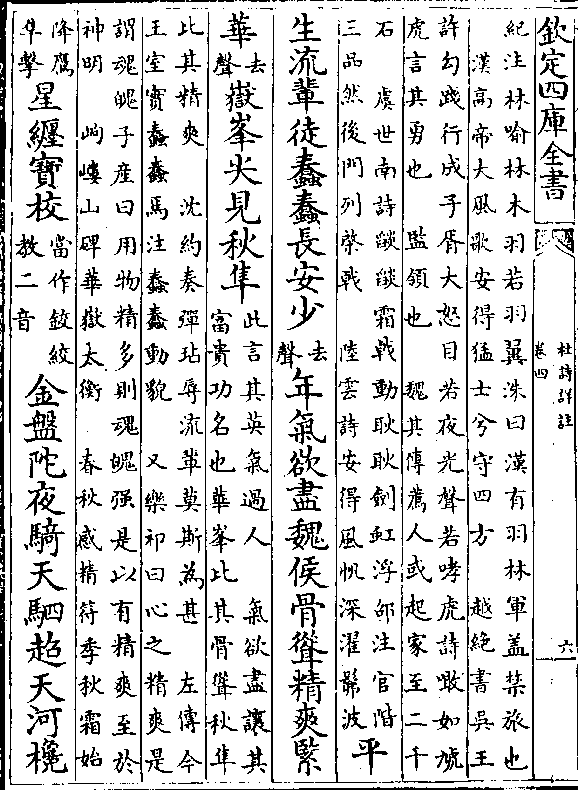 欽定四庫全書
杜詩詳註
卷四
六
紀注林喻林木羽若羽翼洙曰漢有羽林軍盖禁旅也
漢高帝大風歌安得猛士兮守四方　越絶書吳王
許勾踐行成子胥大怒目若夜光聲若哮虎詩噉如虓
虎言其勇也　監領也　魏其傳薦人或起家至二千
石　虞世南詩燄燄霜戟動耿耿劍虹浮邵注官階
三品然後門列棨戟　陸雲詩安得風帆深濯髴波
平
生流輩徒蠢蠢長安少去聲年氣欲盡魏侯骨聳精爽緊
華去聲嶽峯尖見秋隼
此言其英氣過人　氣欲盡讓其
富貴功名也華峯比其骨聳秋隼
比其精爽　沈約奏彈玷辱流輩莫斯為甚　左傳今
王室實蠢蠢馬注蠢蠢動貌　又樂祁曰心之精爽是
謂魂魄子產曰用物精多則魂魄强是以有精爽至於
神明　岣嶁山碑華嶽太衡　春秋感精符季秋霜始
降鷹
隼擊
星纏寶校當作鉸絞教二音金盤陀夜騎天駟超天河欃